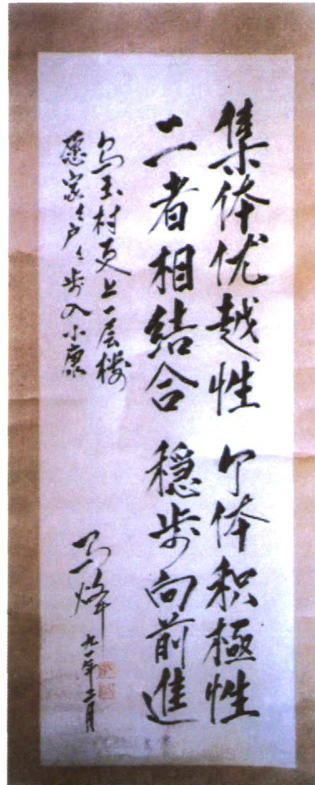 集体优越性 个体积極性
二者相结合 穩步向前進
乌玉村更上一层楼
愿家々户々步入小康
马烽
九一年二月